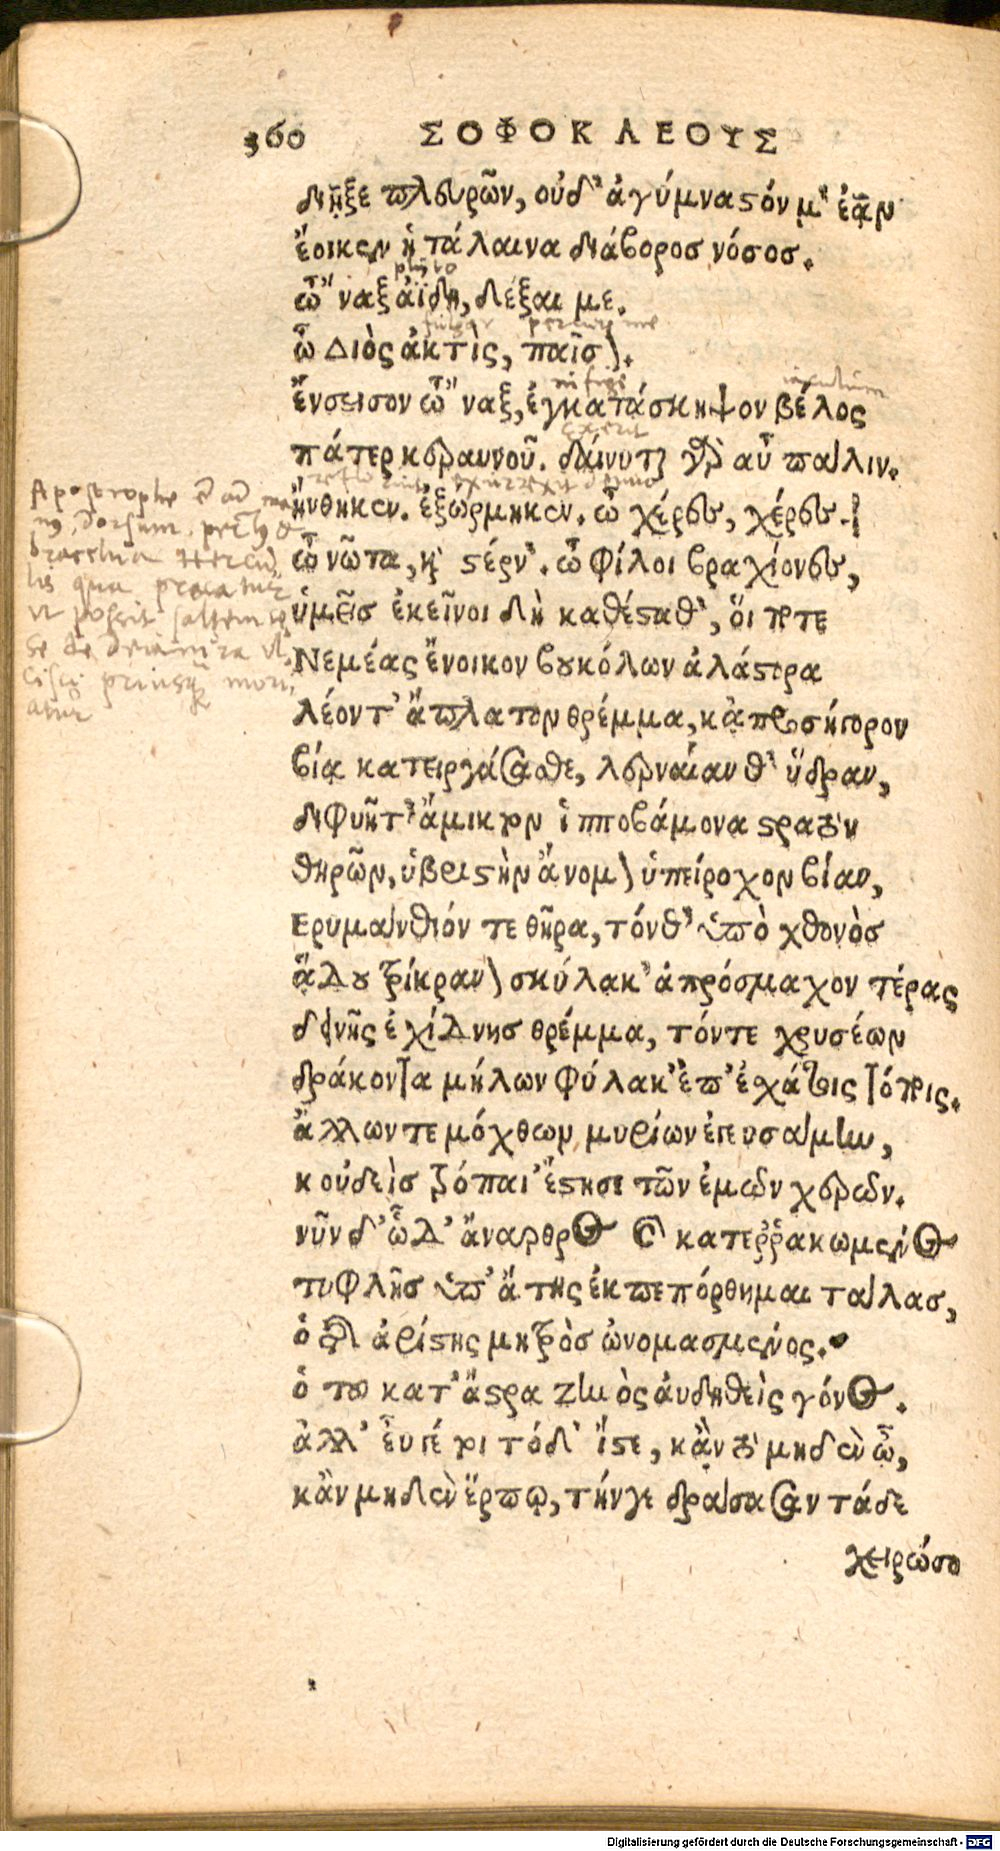 360 ΣΟΦΟΚΛΕΟΥΣ
διῇξε πλευρῶν, οὐδ' ἀγύμναστόν μ' ἐᾷν
ἔοικεν ἡ τάλαινα διάβορος νόσος.
ὦ 'ναξ ἀΐδη, δέξαι με.
ὦ Διὸς ἀκτὶς, παῖσον.
ἔνσεισον ὦ 'ναξ, ἐγκατάσκηψον βέλος
πάτερ κεραυνοῦ. δαίνυται γὰρ αὖ πάλιν.
ἤνθηκεν. ἐξώρμηκεν. ὦ χέρες, χέρες.
ὦ νῶτα, καὶ στέρν'. ὦ φίλοι βραχίονες,
ὑμεῖς ἐκεῖνοι δὴ καθέσταθ', ὅι ποτε
Νεμέας ἔνοικον βουκόλων ἀλάστορα
λέοντ' ἄπλατον θρέμμα, κᾀπροσήγορον
βίᾳ κατειργάσασθε, λερναίαν θ' ὕδραν,
διφυῆ τ' ἄμικτον ἱπποβάμονα στρατὸν
θηρῶν, ὑβριστὴν ἄνομον ὑπείροχον βίαν,
Ερυμάνθιόν τε θῆρα, τόνθ' ὑπὸ χθονὸς
ᾅδου τρίκρανον σκύλακ' ἀπρόσμαχον τέρας
δεινῆς ἐχίδνης θρέμμα, τόντε χρυσέων
δράκοντα μήλων φύλακ' ἐπ' ἐχάτοις τόποις.
ἄλλων τε μόχθων μυρίων ἐγευσάμην,
κοὐδεὶς τρόπαι' ἔστησε τῶν ἐμῶν χερῶν.
νῦν δ' ὧδ' ἄναρθρος καὶ κατερῤῥακωμένος
τυφλῆς ὑπ' ἄτης ἐκπεπόρθημαι τάλας,
ὁ τῆς ἀρίστης μητρὸς ὠνομασμένος.
ὁ τοῦ κατ' ἄστρα Ζηνὸς ἀυδηθεὶς γόνος.
ἀλλ' εὖ γέ τοι τόδ' ἴστε, κἂν τὸ μηδὲν ὦ,
κἂν μηδὲν ἕρπω, τήνγε δράσασαν τάδε
χειρώσο
Apostrophe
Digitalisierung gefördert durch die Deutsche Forschungsgemeinschaft - DFG